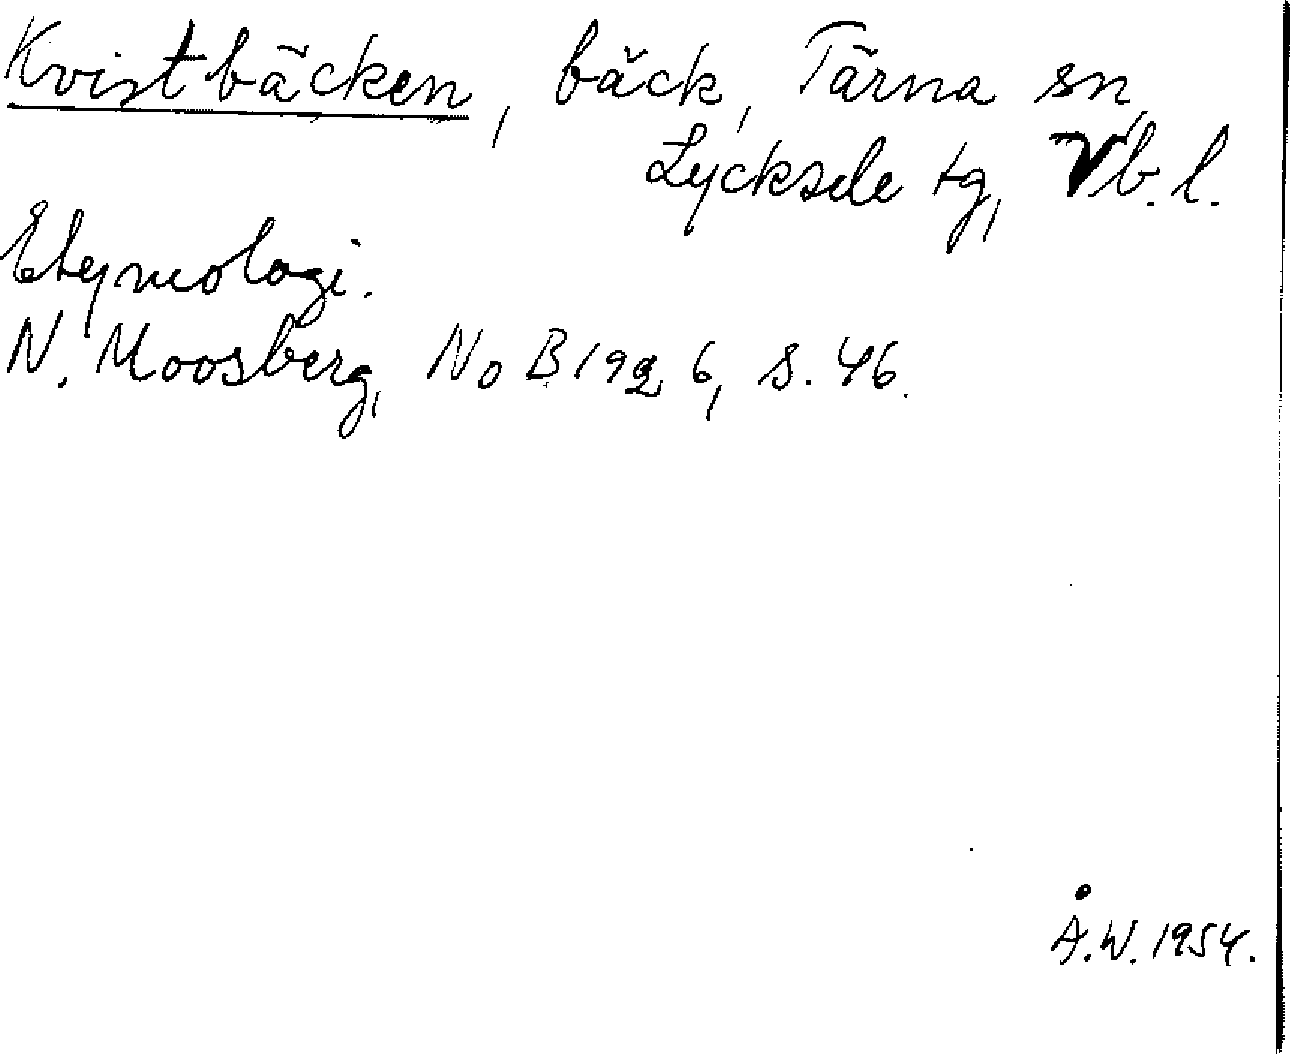 Kvistbäcken, bäck, Tärna sn,
Lycksele tg, Vb. l.
Etymologi.
N. Moosberg, NoB 1926, s. 46.
Å.W. 1954.